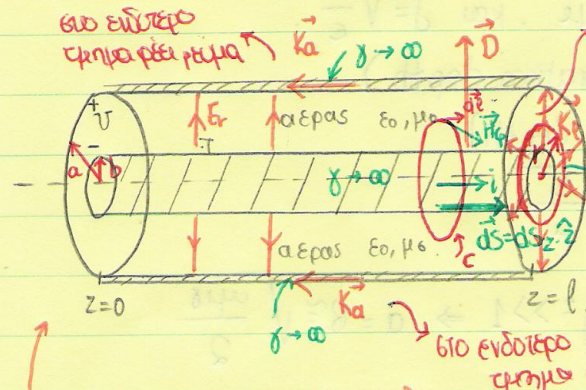 στο ενδότερο
τμημα ρέει ρεύμα
K⃗a
γ→∞
D⃗
+
U
-
Er
αερας ε₀, μ₀
a
b
γ→∞
i⃗
H⃗φ
dS⃗=dS_z·ẑ
αερας ε₀, μ₀.
c
z=0
K⃗a
z=l
γ→∞
στο ενδοτερο
τμημα